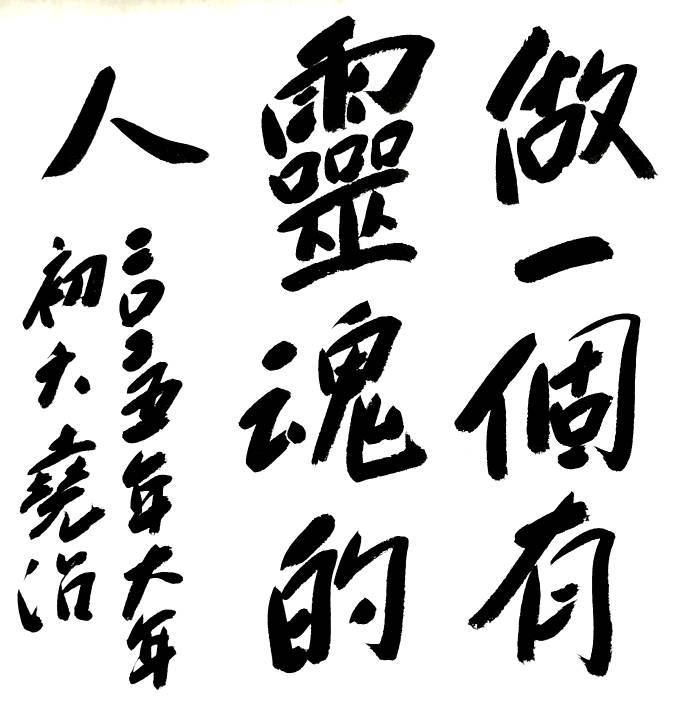 做一個有
靈魂的
人
二〇二五年大年
初六堯